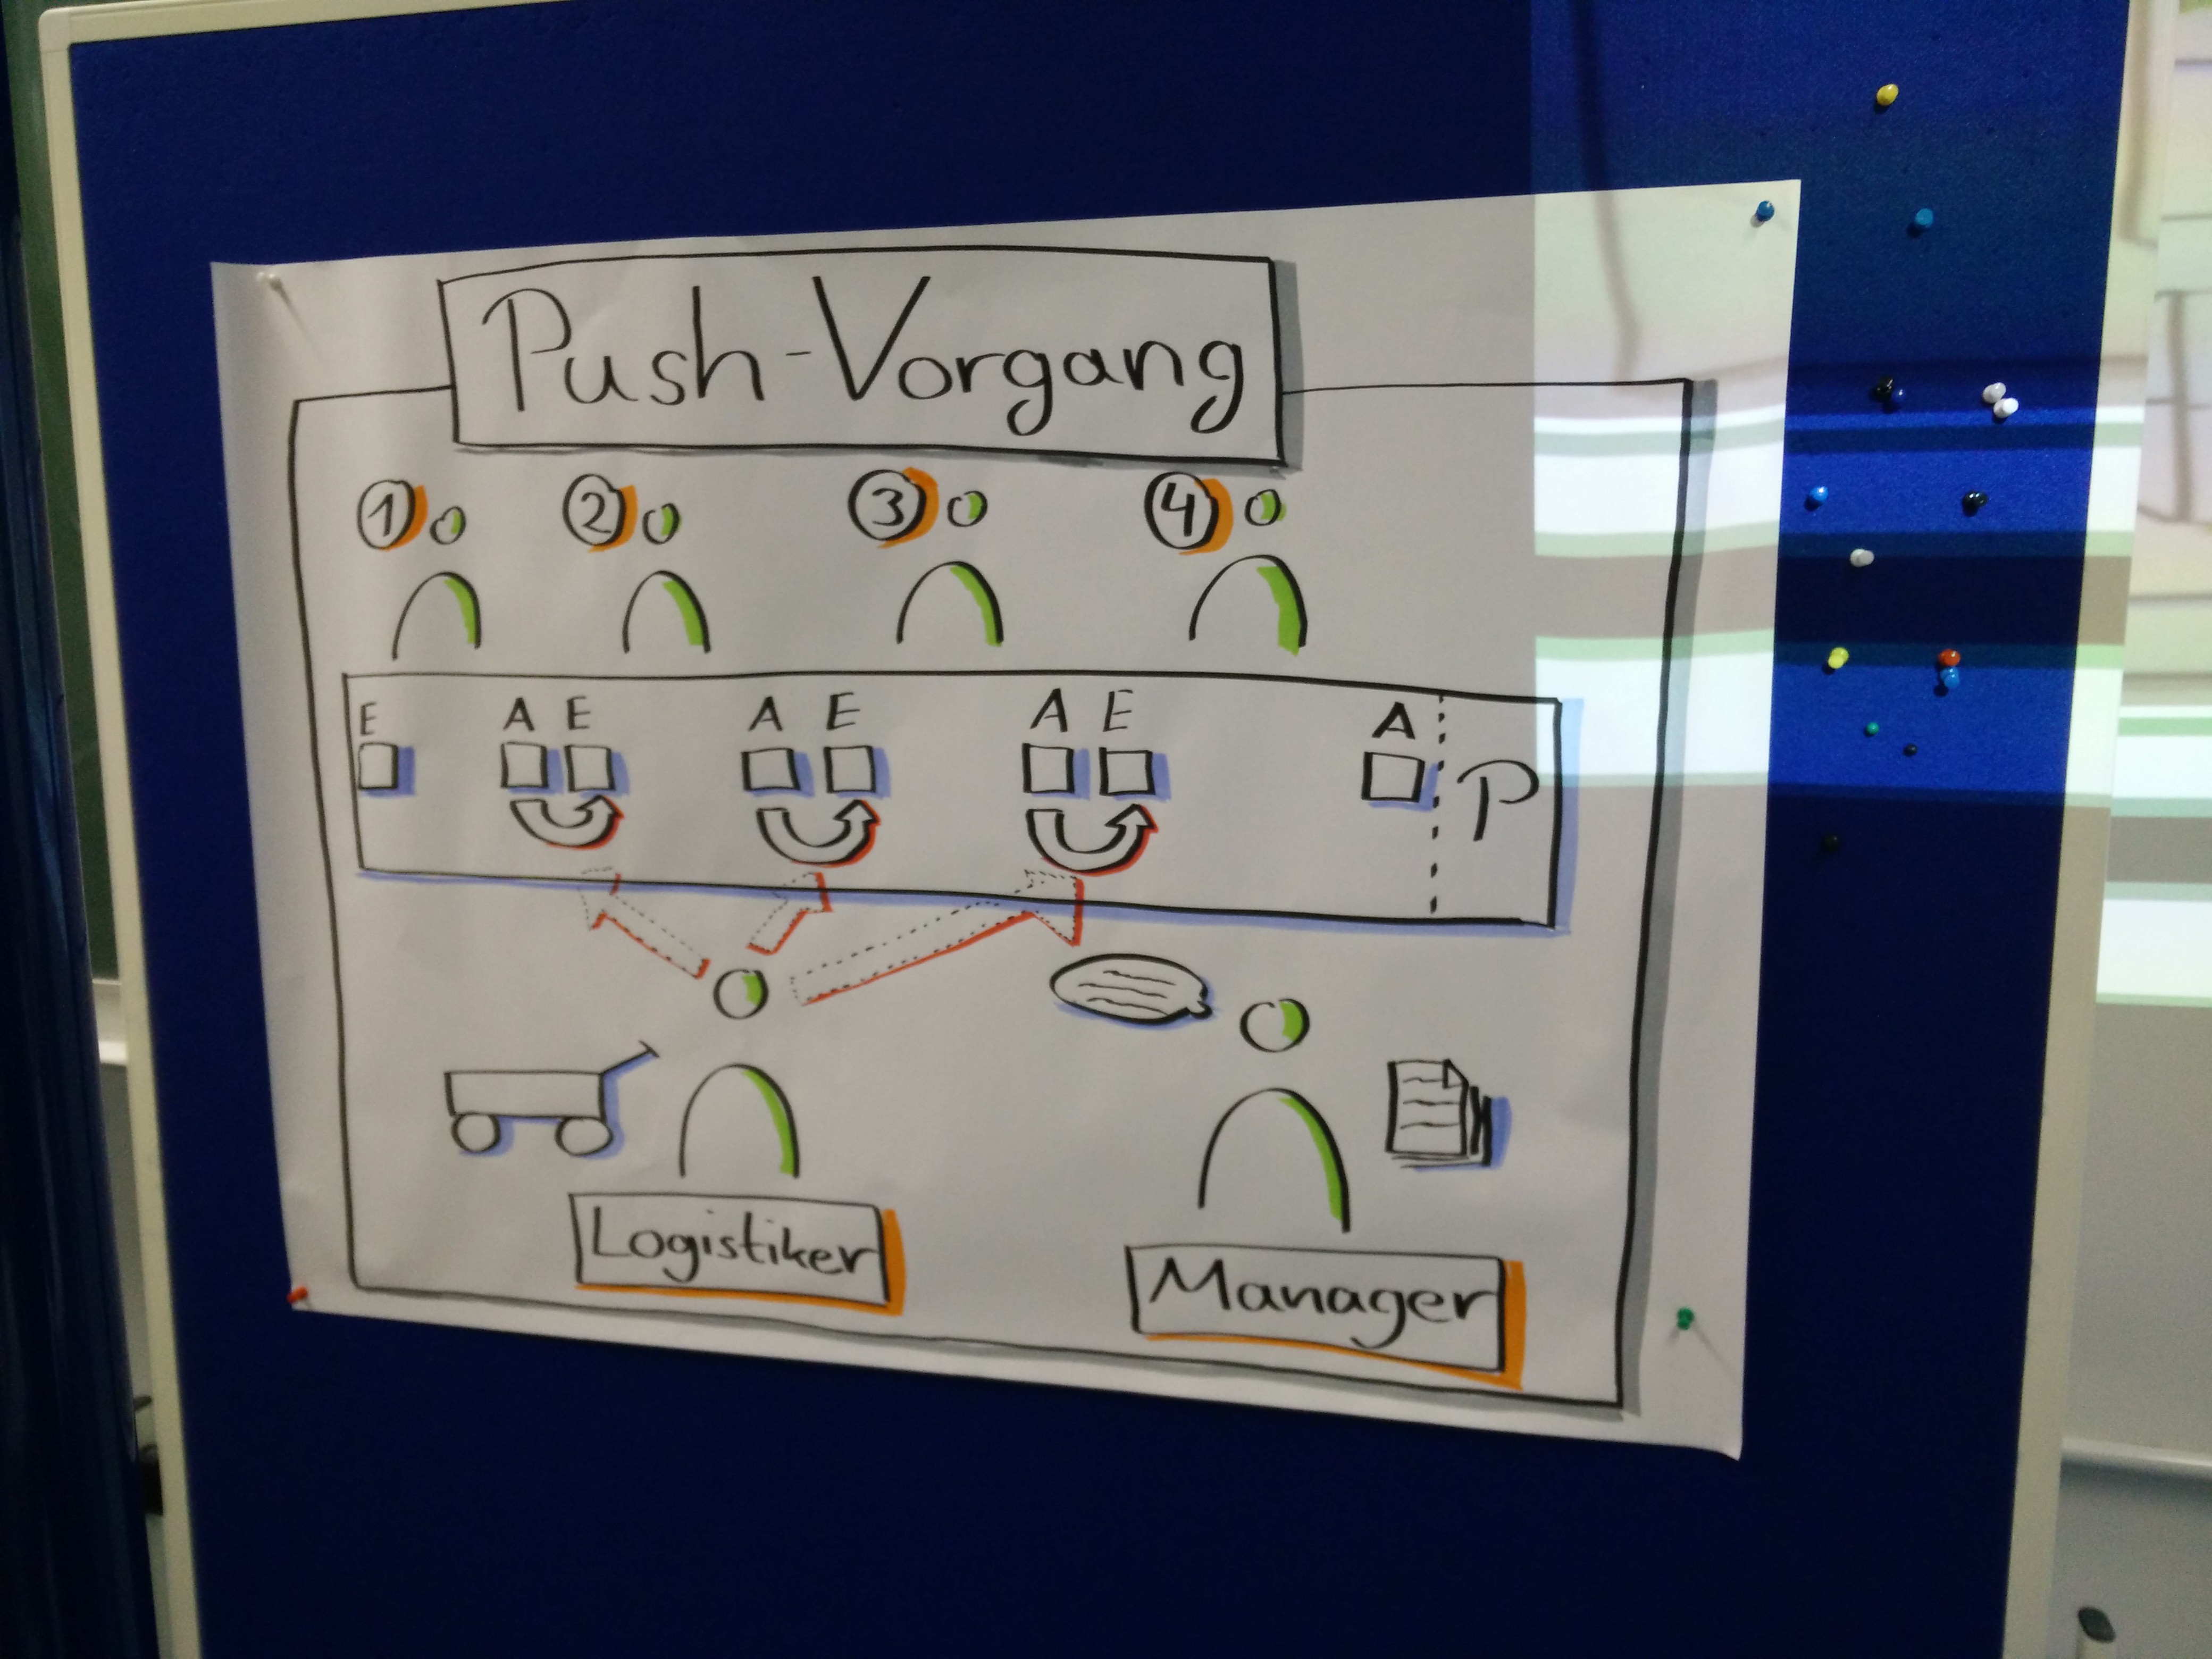 Push-Vorgang
1 2 3 4
E A E A E A E A
P
Logistiker
Manager